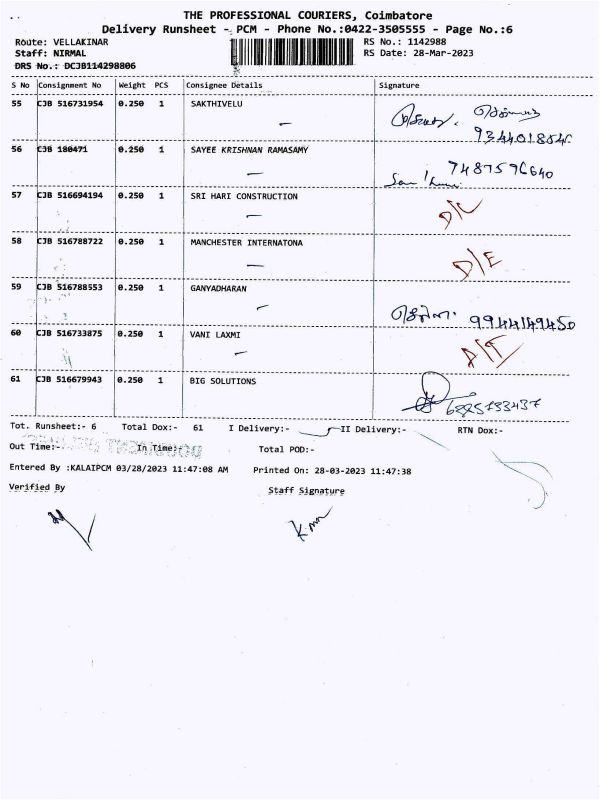 THE PROFESSIONAL COURIERS, Coimbatore
Delivery Runsheet - PCM - Phone No.:0422-3505555 - Page No.:6
Route: VELLAKINAR RS No.: 1142988
Staff: NIRMAL RS Date: 28-Mar-2023
DRS No.: DCJB114298806
S No Consignment No Weight PCS Consignee Details Signature
55 CJB 516731954 0.250 1 SAKTHIVELU
56 CJB 180471 0.250 1 SAYEE KRISHNAN RAMASAMY
7487596640
57 CJB 516694194 0.250 1 SRI HARI CONSTRUCTION D/C
58 CJB 516788722 0.250 1 MANCHESTER INTERNATONA D/E
59 CJB 516788553 0.250 1 GANYADHARAN
9944149450
60 CJB 516733875 0.250 1 VANI LAXMI
61 CJB 516679943 0.250 1 BIG SOLUTIONS
Tot. Runsheet:- 6 Total Dox:- 61 I Delivery:- II Delivery:- RTN Dox:-
Out Time:- In Time:- Total POD:-
Entered By :KALAIPCM 03/28/2023 11:47:08 AM Printed On: 28-03-2023 11:47:38
Verified By Staff Signature